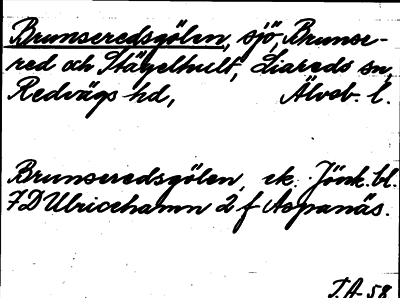 Brunseredsgölen, sjö, Brunse-
red och Stägelhult, Liareds sn,
Redvägs hd, Älvsb. l.
Brunseredsgölen, ek. Jönk. bl.
7D Ulricehamn 2 f Aspanäs.
T.A. 58